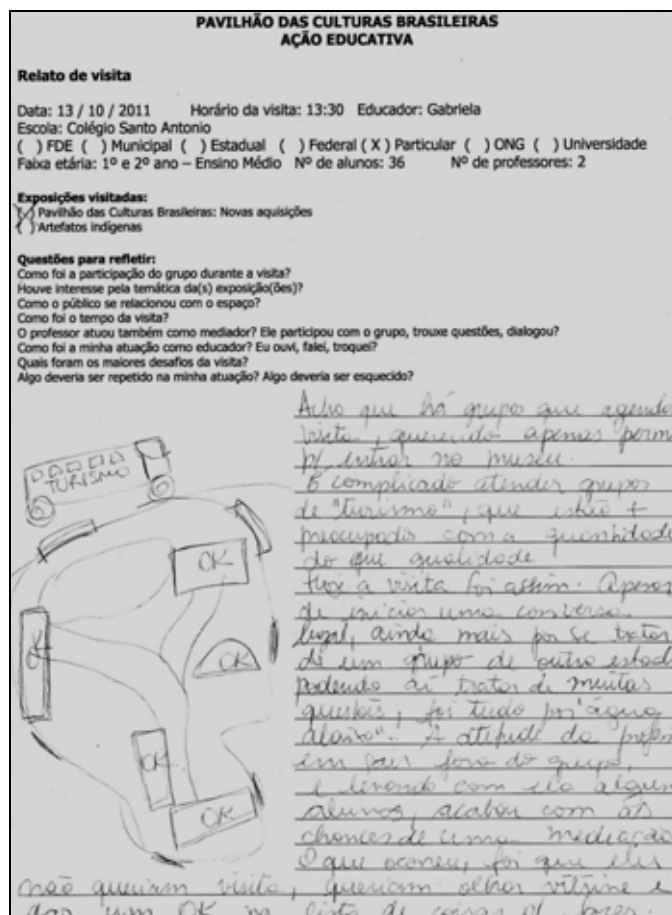 PAVILHÃO DAS CULTURAS BRASILEIRAS
AÇÃO EDUCATIVA
Relato de visita
Data: 13 / 10 / 2011 Horário da visita: 13:30 Educador: Gabriela
Escola: Colégio Santo Antonio
( ) FDE ( ) Municipal ( ) Estadual ( ) Federal ( X ) Particular ( ) ONG ( ) Universidade
Faixa etária: 1º e 2º ano – Ensino Médio Nº de alunos: 36 Nº de professores: 2
Exposições visitadas:
(X) Pavilhão das Culturas Brasileiras: Novas aquisições
( ) Artefatos indígenas
Questões para refletir:
Como foi a participação do grupo durante a visita?
Houve interesse pela temática da(s) exposição(ões)?
Como o público se relacionou com o espaço?
Como foi o tempo da visita?
O professor atuou também como mediador? Ele participou com o grupo, trouxe questões, dialogou?
Como foi a minha atuação como educador? Eu ouvi, falei, troquei?
Quais foram os maiores desafios da visita?
Algo deveria ser repetido na minha atuação? Algo deveria ser esquecido?
Acho que há grupos que agenda
visita, querendo apenas
p/ entrar no museu.
É complicado atender grupos
de "turismo", que estão +
preocupados com a quantidade
do que qualidade
Hoje a visita foi assim. Apesar
de iniciar uma conversa
legal, ainda mais por se tratar
de um grupo de outro estado
podendo aí tratar de muitas
questões, foi tudo por "água
abaixo". A atitude da
em sair fora do grupo,
e levando com ela algun
alunos, acabou com as
chances de uma mediação
O que ocorreu, foi que eles
não queriam visita, queriam olhar vitrine e
dar um OK na lista de coisas p/ fazer.
TURISMO
OK
OK
OK
OK
OK